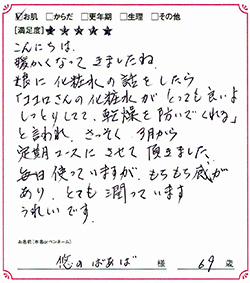 ☑お肌 □からだ □更年期 □生理 □その他
[満足度]★★★★★
こんにちは。
暖かくなってきましたね。
娘に化粧水の話をしたら
「ココロさんの化粧水がとっても良いよ
しっとりしてて、乾燥を防いでくれる」
と言われ、さっそく3月から
定期コースにさせて頂きました。
毎日使っていますが、もちもち感が
あり、とても潤っています
うれしいです。
お名前(本名orペンネーム)
悠のばあば 様 69 歳